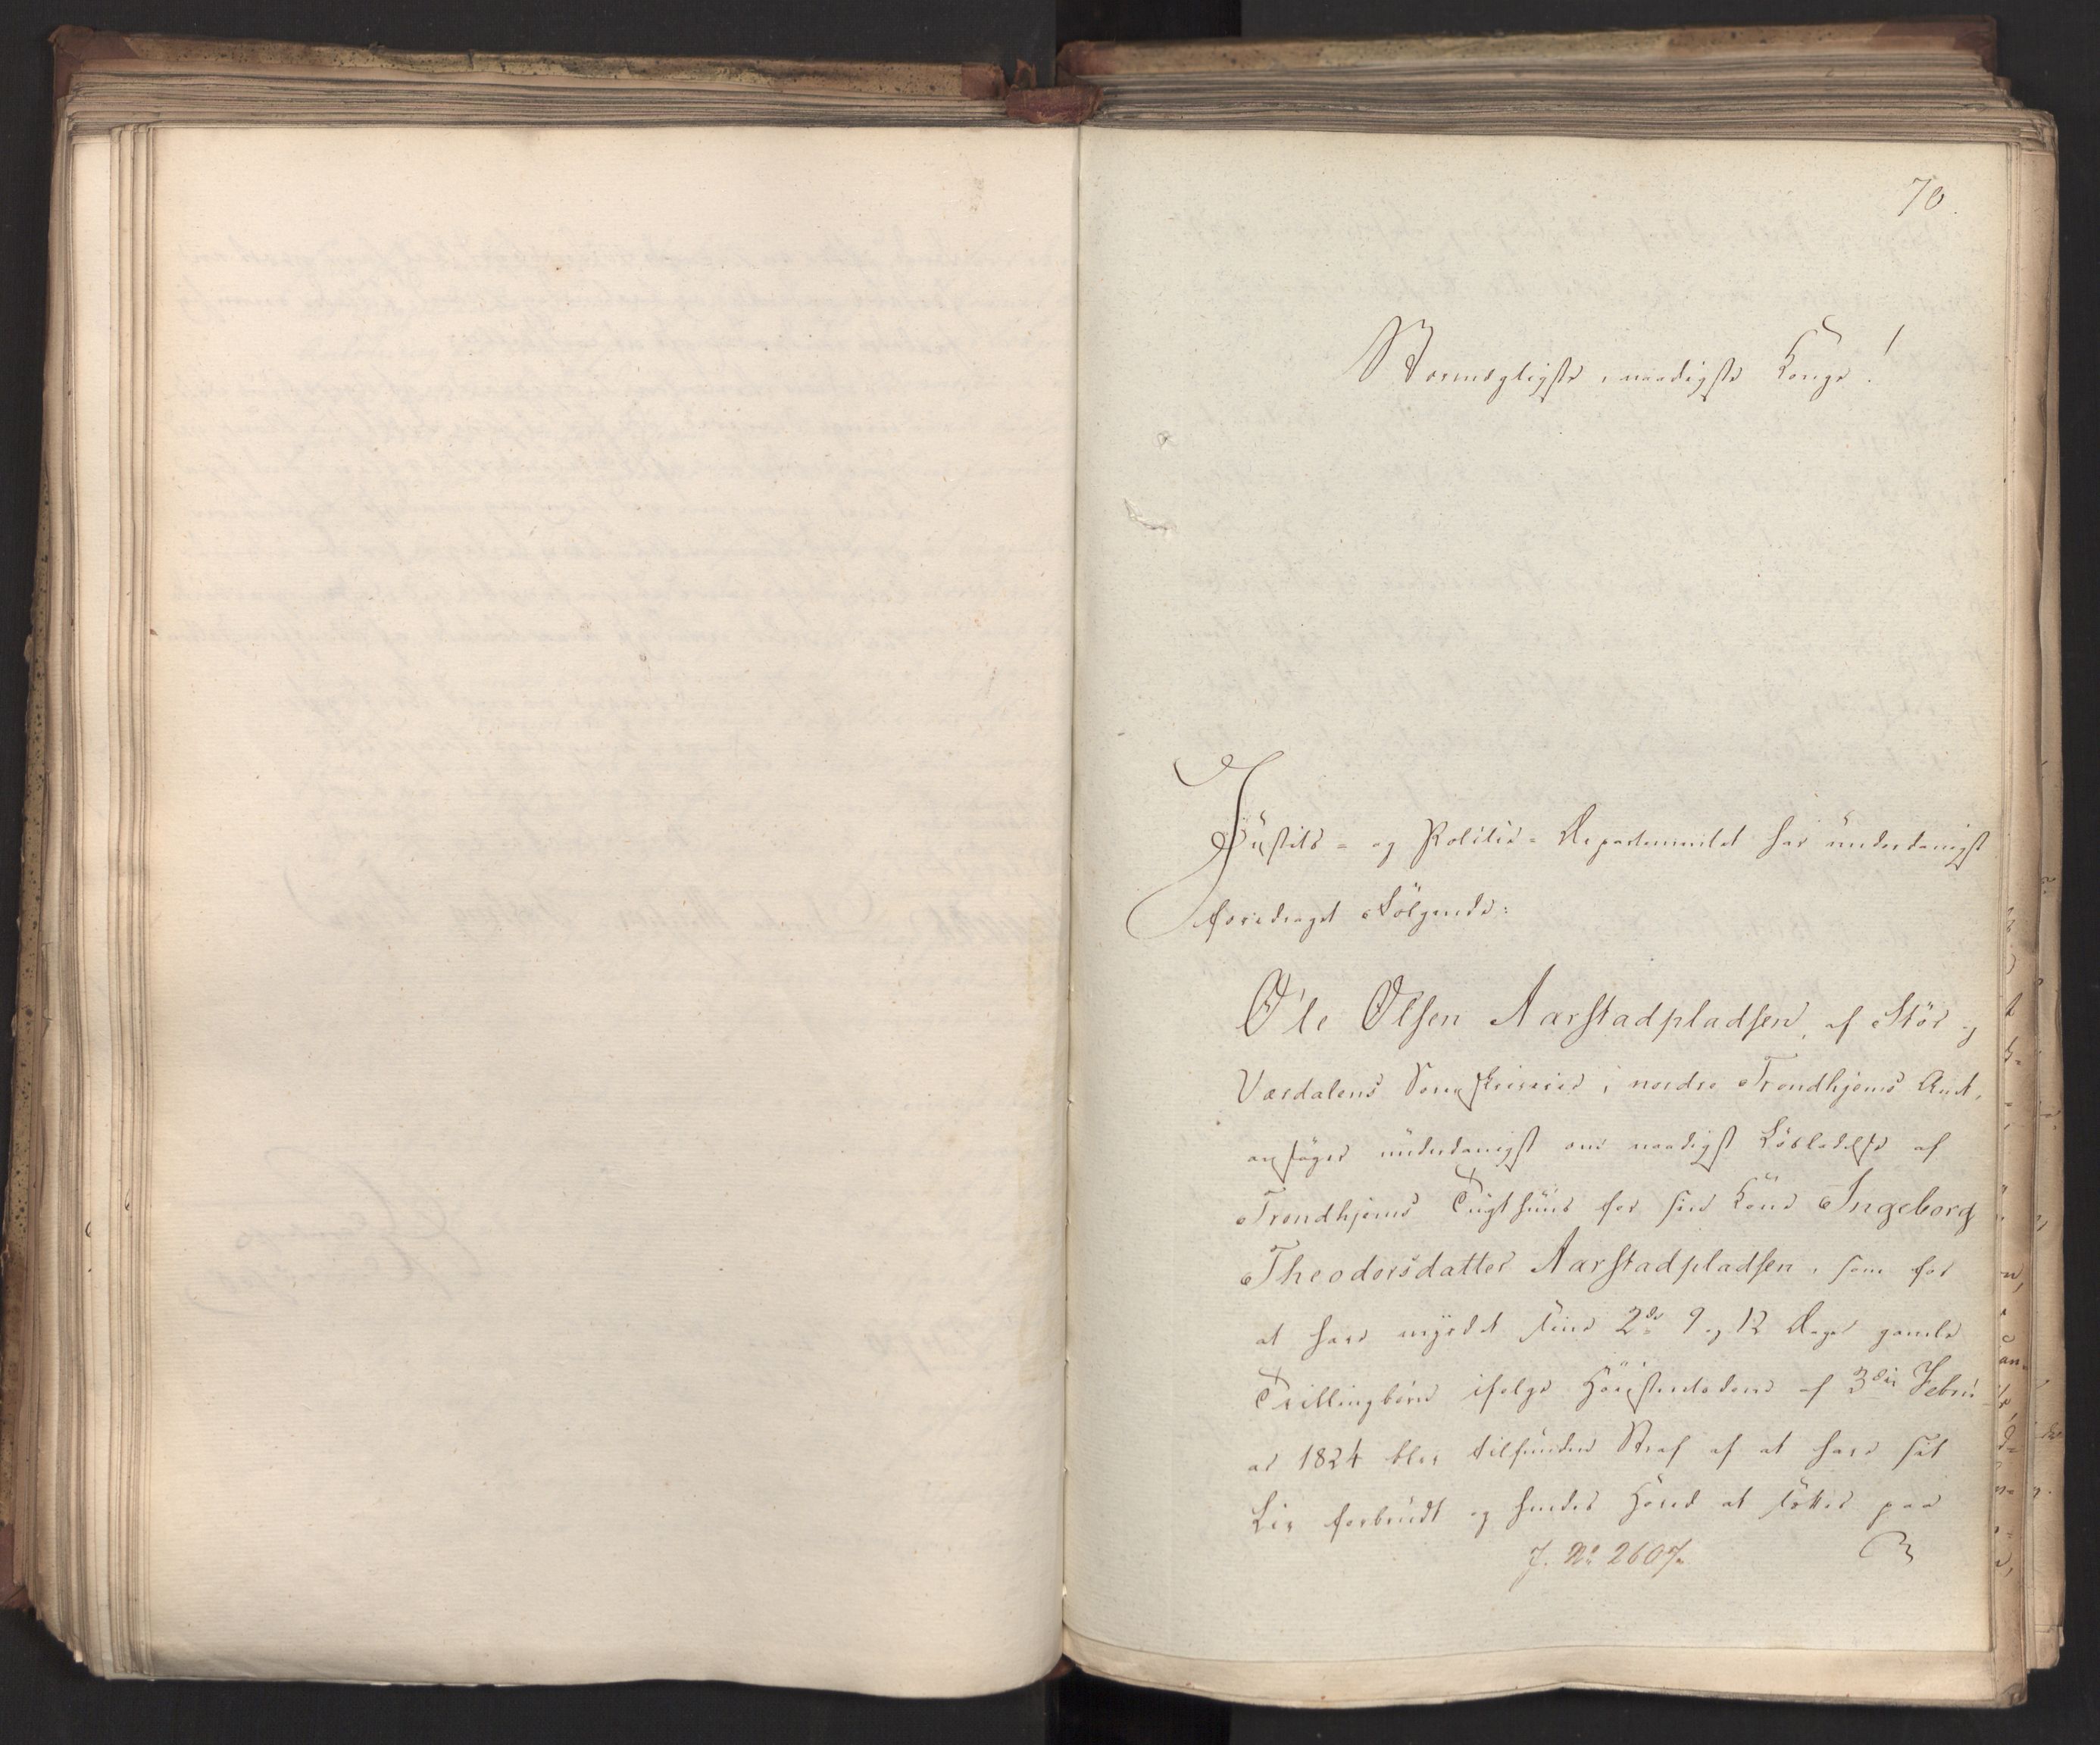 70.
Stormægtigste, naadigste Konge!
Justits- og Politie-Departementet har underdanigst
foredraget Følgende:
Ole Olsen Aarstadpladsen, af Stör og
Værdalens Sorenskriverie i nordre Trondhjems Amt,
ansøger underdanigst om naadigst Løsladelse af
Trondhjems Tugthuus for sin Kone Ingeborg
Theodorsdatter Aarstadpladsen, som for
at have myrdet sine 2de 9 og 12 Dage gamle
Tvillingbørn ifølge Høiesteretsdom af 3die Febru
ar 1824 blev tilfunden Straf af at have sit
Liv forbrudt og hendes Hoved at sættes paa
J. No 2607.